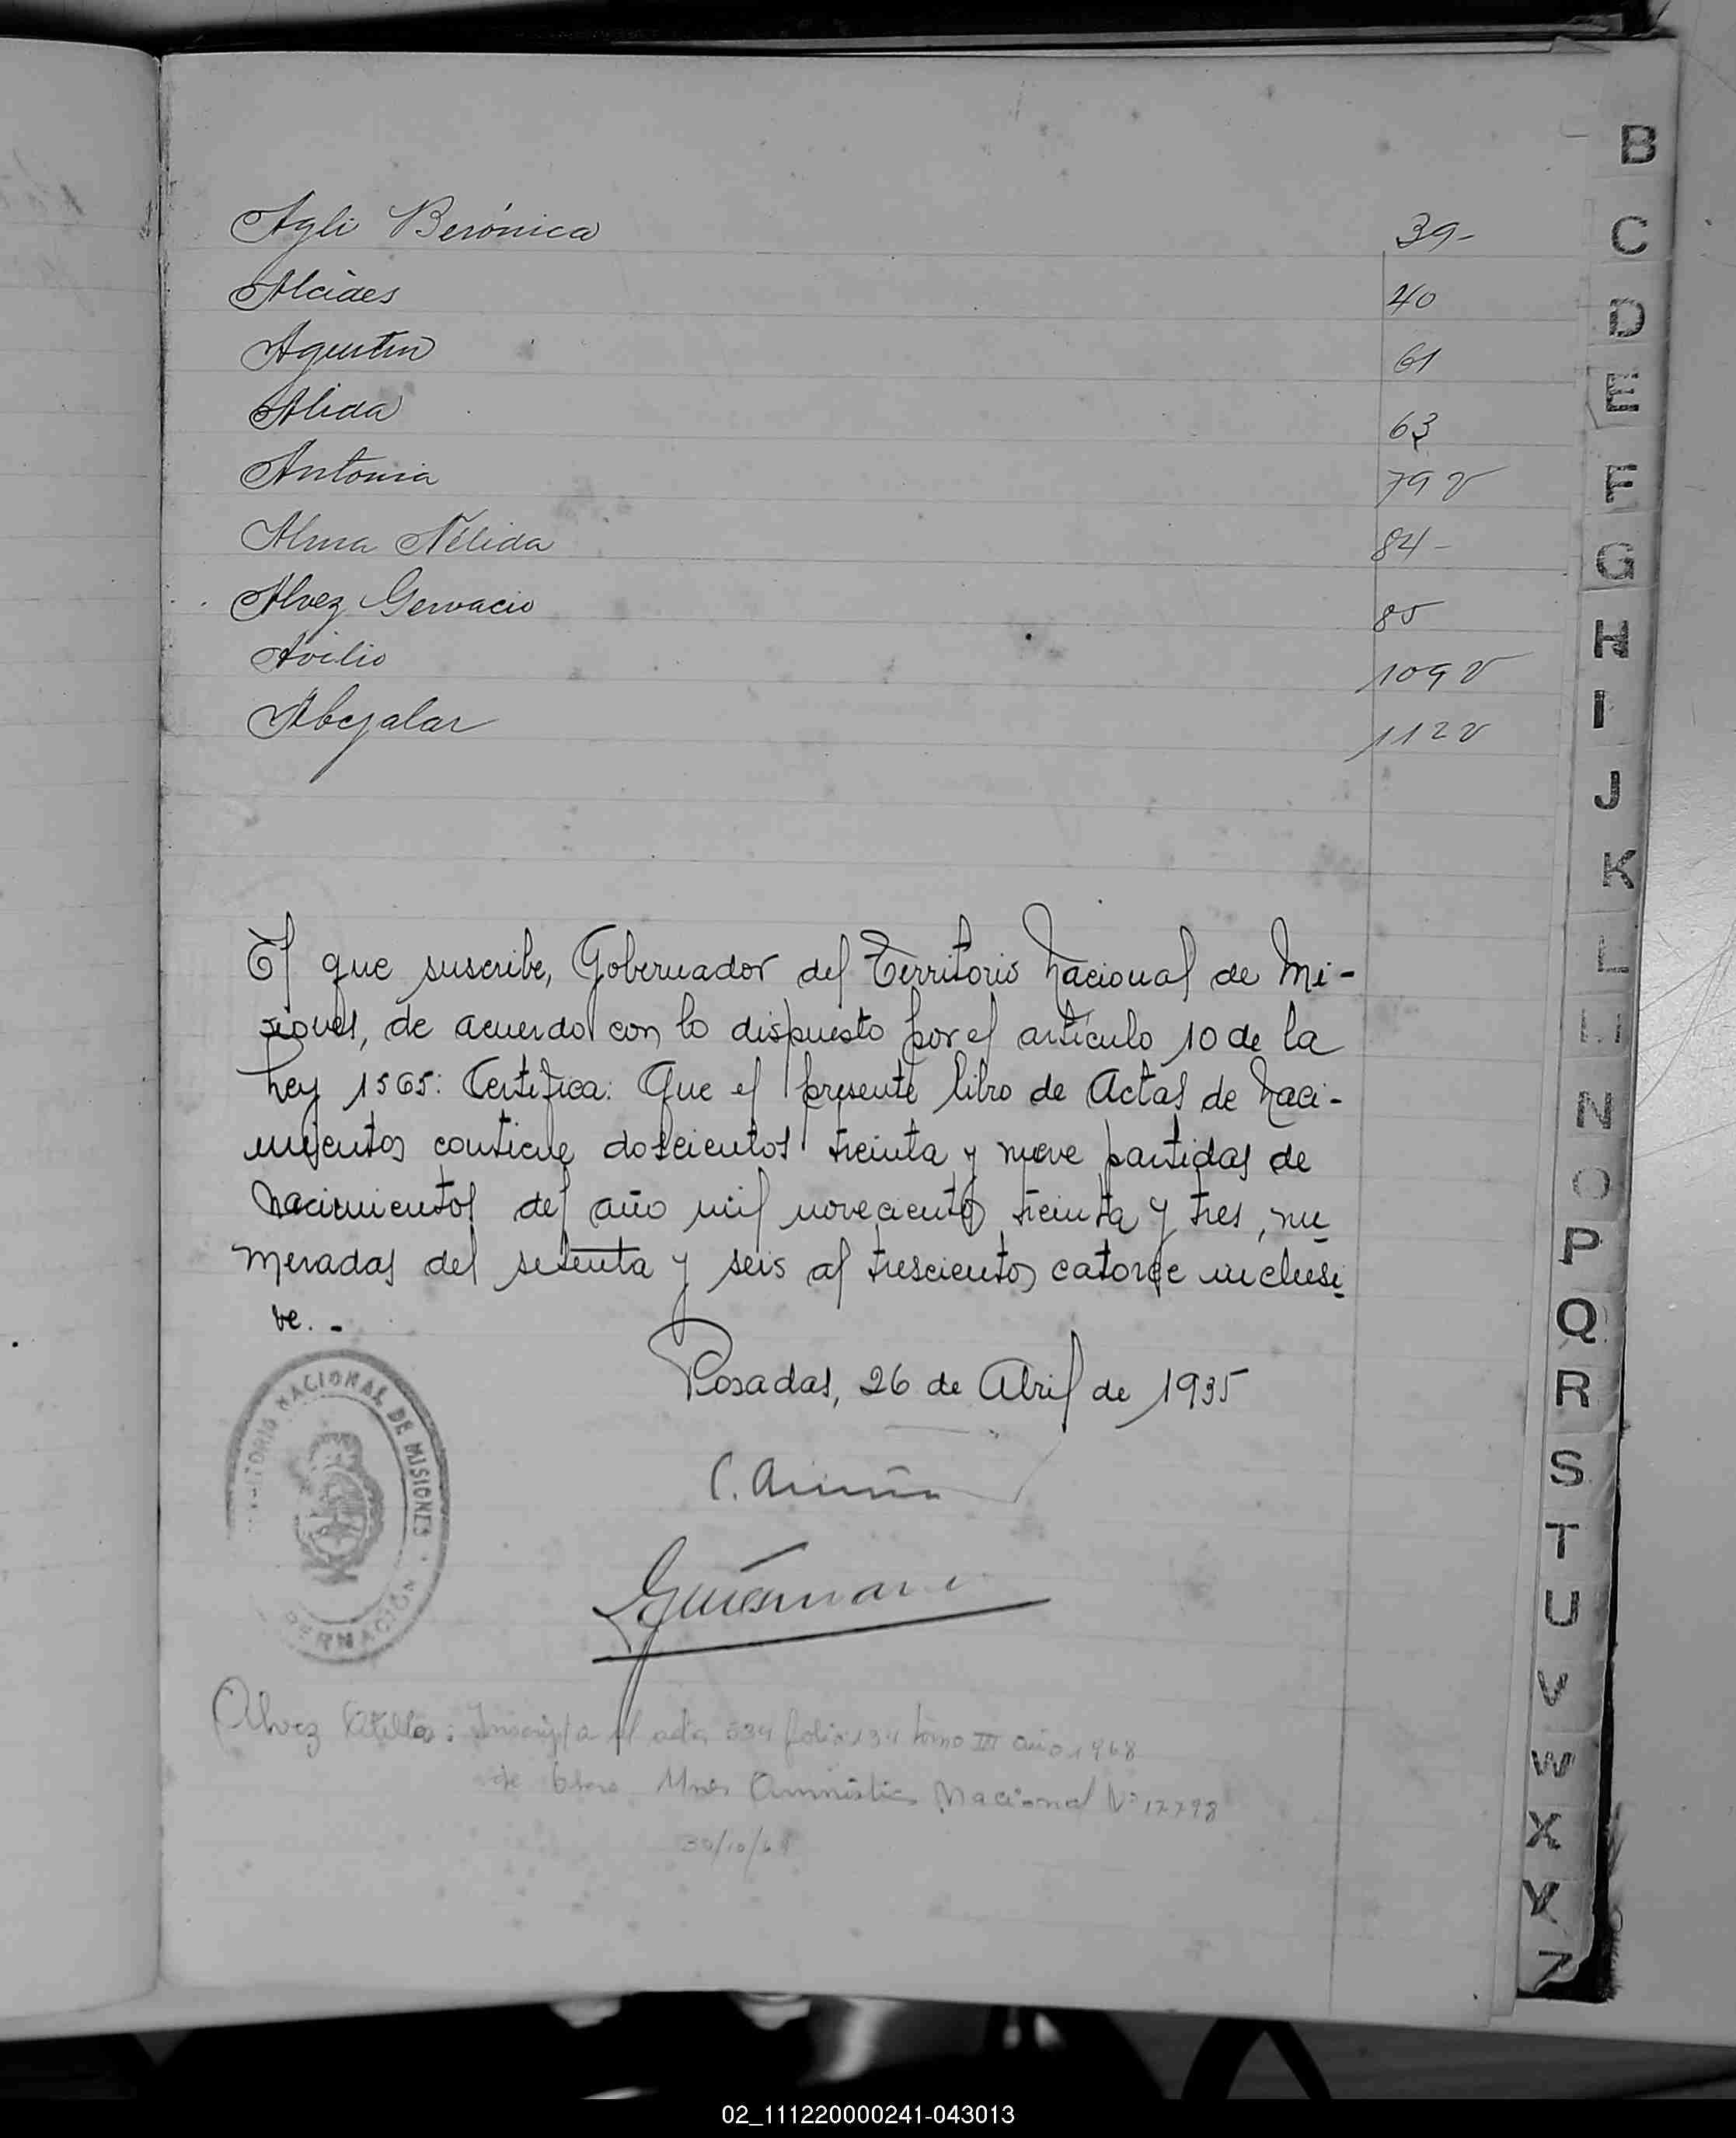 Agli Berónica 39-
Alcides 40
Agustin 61
Alida 63
Antonia 79 v
Alma Nélida 84-
Alvez Gervacio 85
Avilio 109 v
Abejalar 112 v
El que suscribe, Gobernador del Territorio Nacional de Mi-
siones, de acuerdo con lo dispuesto por el artículo 10 de la
Ley 1565: Certifica: Que el presente libro de Actas de Naci-
mientos contiene doscientos treinta y nueve partidas de
nacimientos del año mil novecientos treinta y tres, nu
meradas del setenta y seis al trescientos catorce inclusi
ve.-
Posadas, 26 de Abril de 1935
NACIONAL DE MISIONES
C.
Alvez : Inscripta el acta 534 folio 134 tomo III año 1968
de Mnes Amnistia Nacional Nº 17798
30/10/68
B
C
D
E
F
G
H
I
J
K
L
M
N
O
P
Q
R
S
T
U
V
W
X
Y
Z
02_111220000241-043013